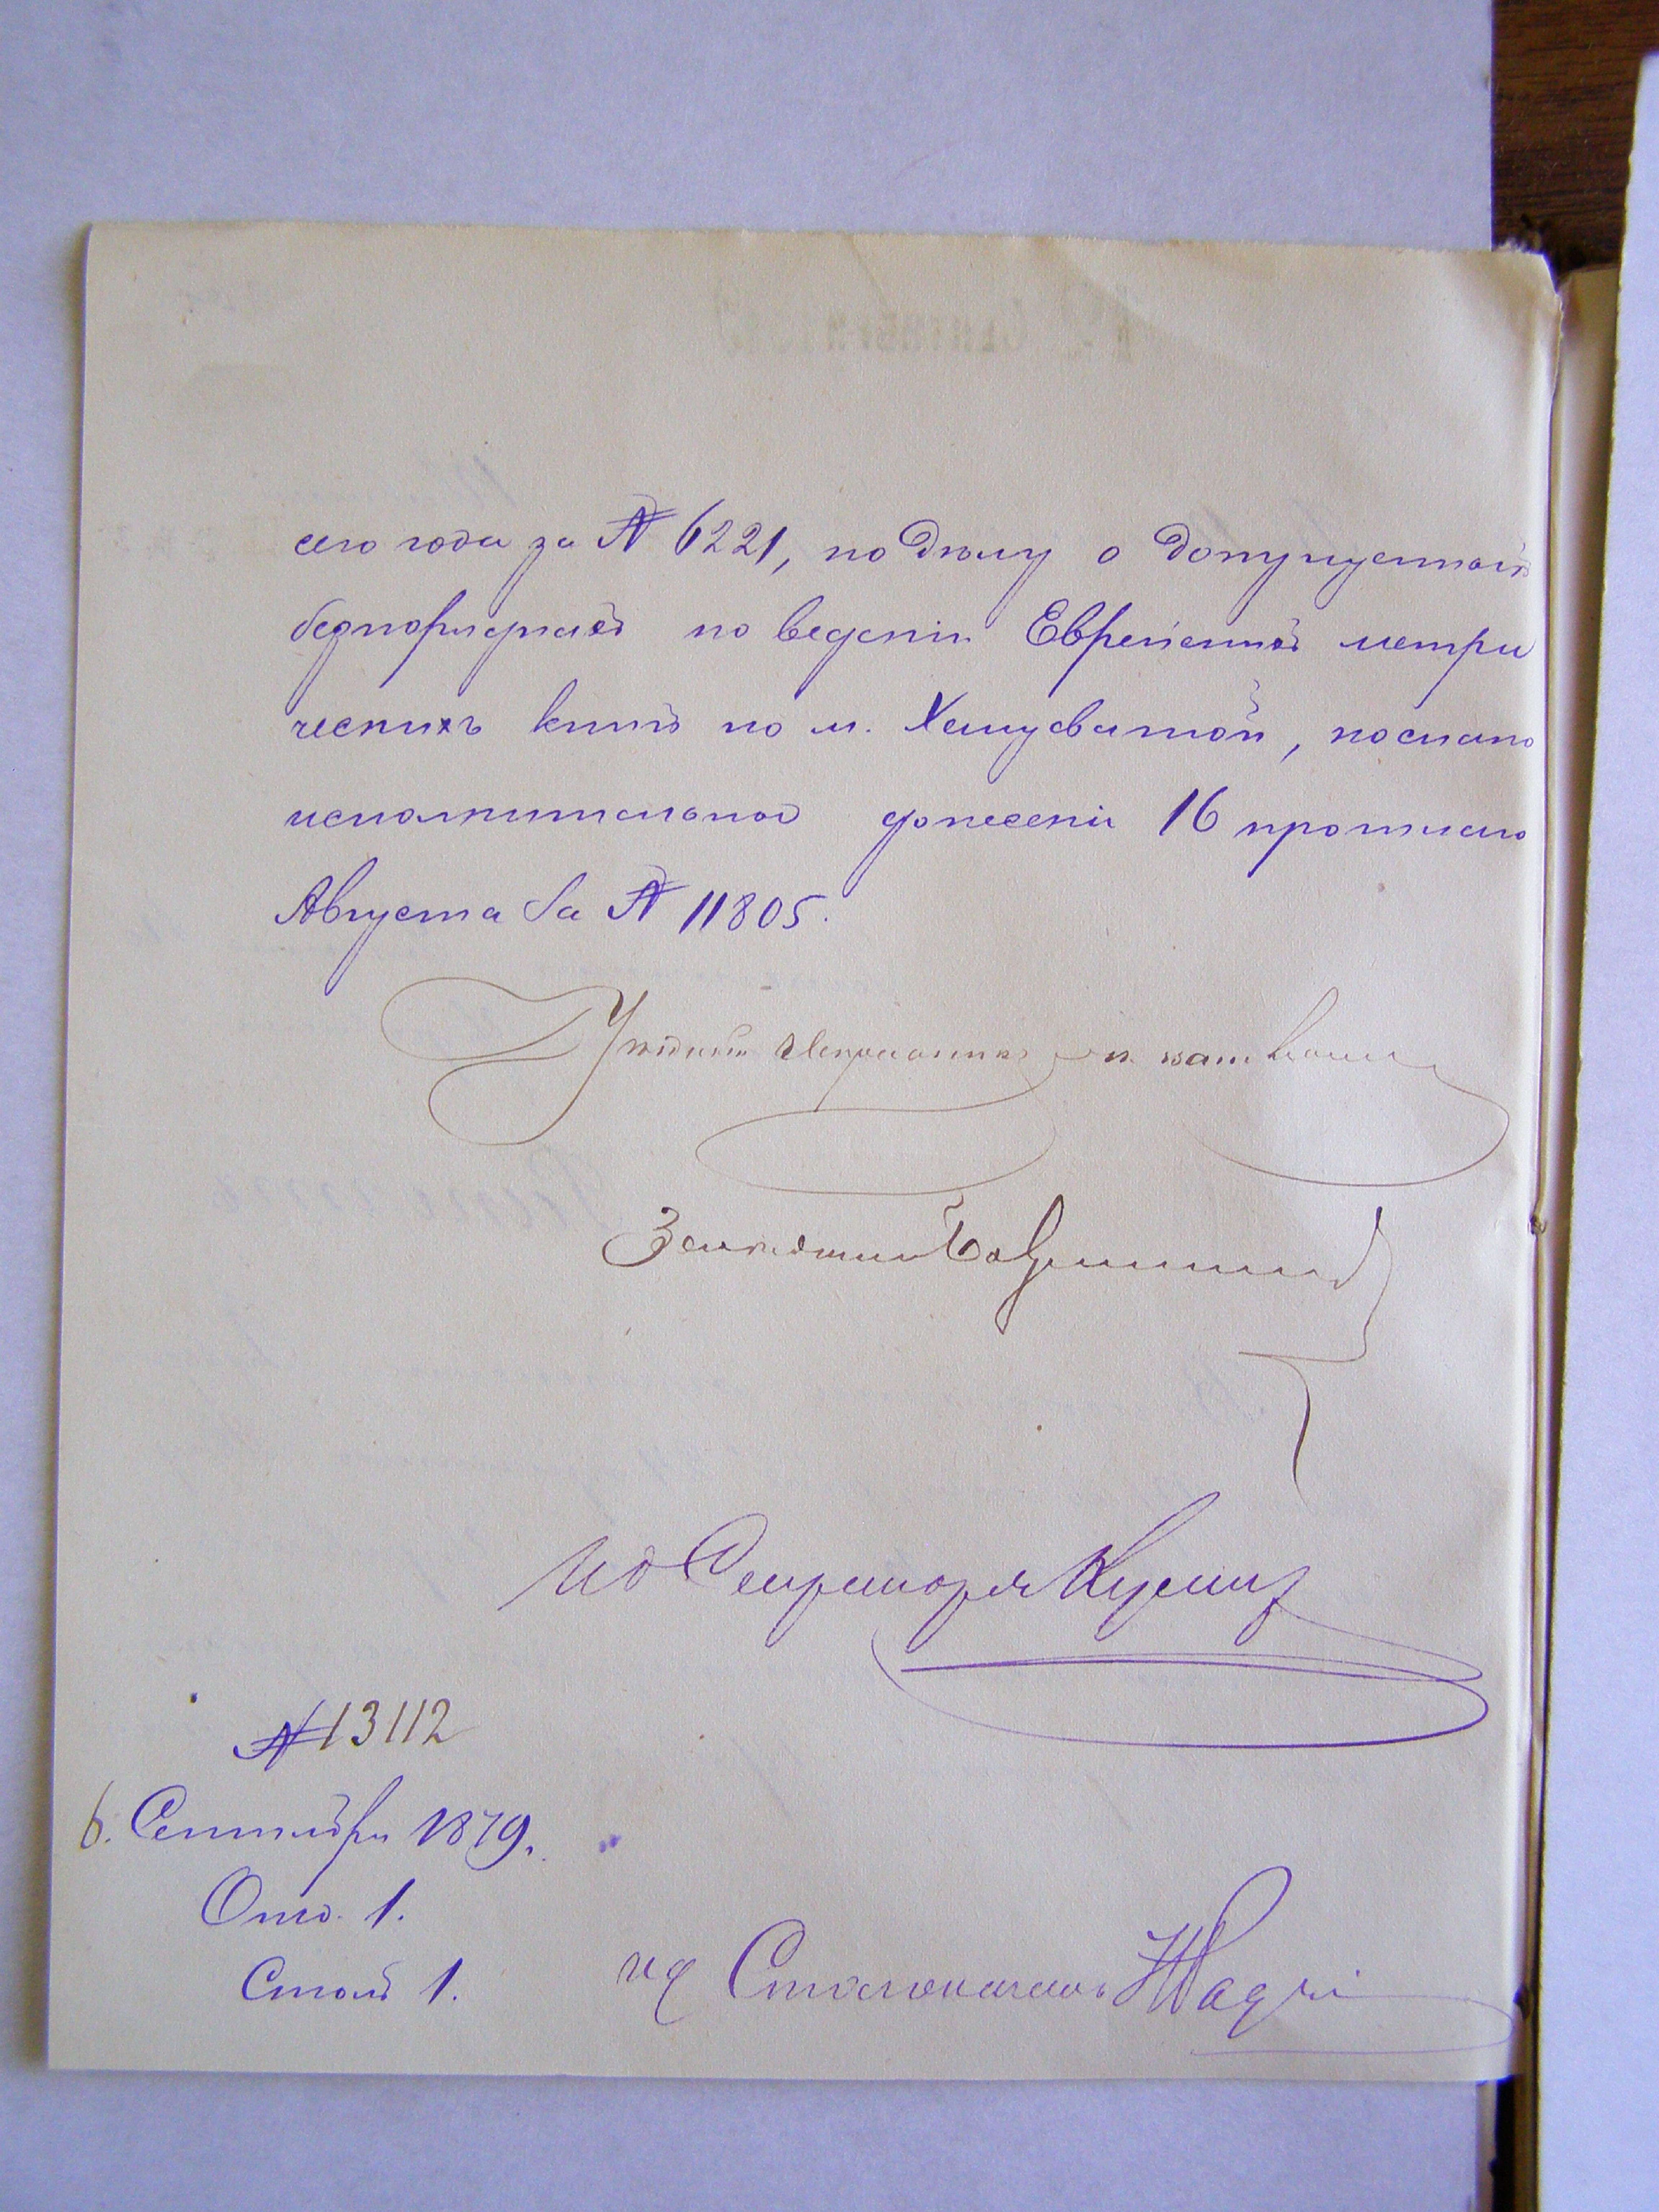 сего года за № 6221, по делу о допущенныхъ
безпорядкахъ по веденію Еврейскихъ метри
ческихъ книгъ по м. Хащеватой, послано
исполнительное донесеніе 16 прошлаго
Августа за № 11805.
Уѣздный Исправникъ
И д Секретаря
№ 13112
6. Сентября 1879.
Отд. 1.
Столъ 1.
ид Столоначальн